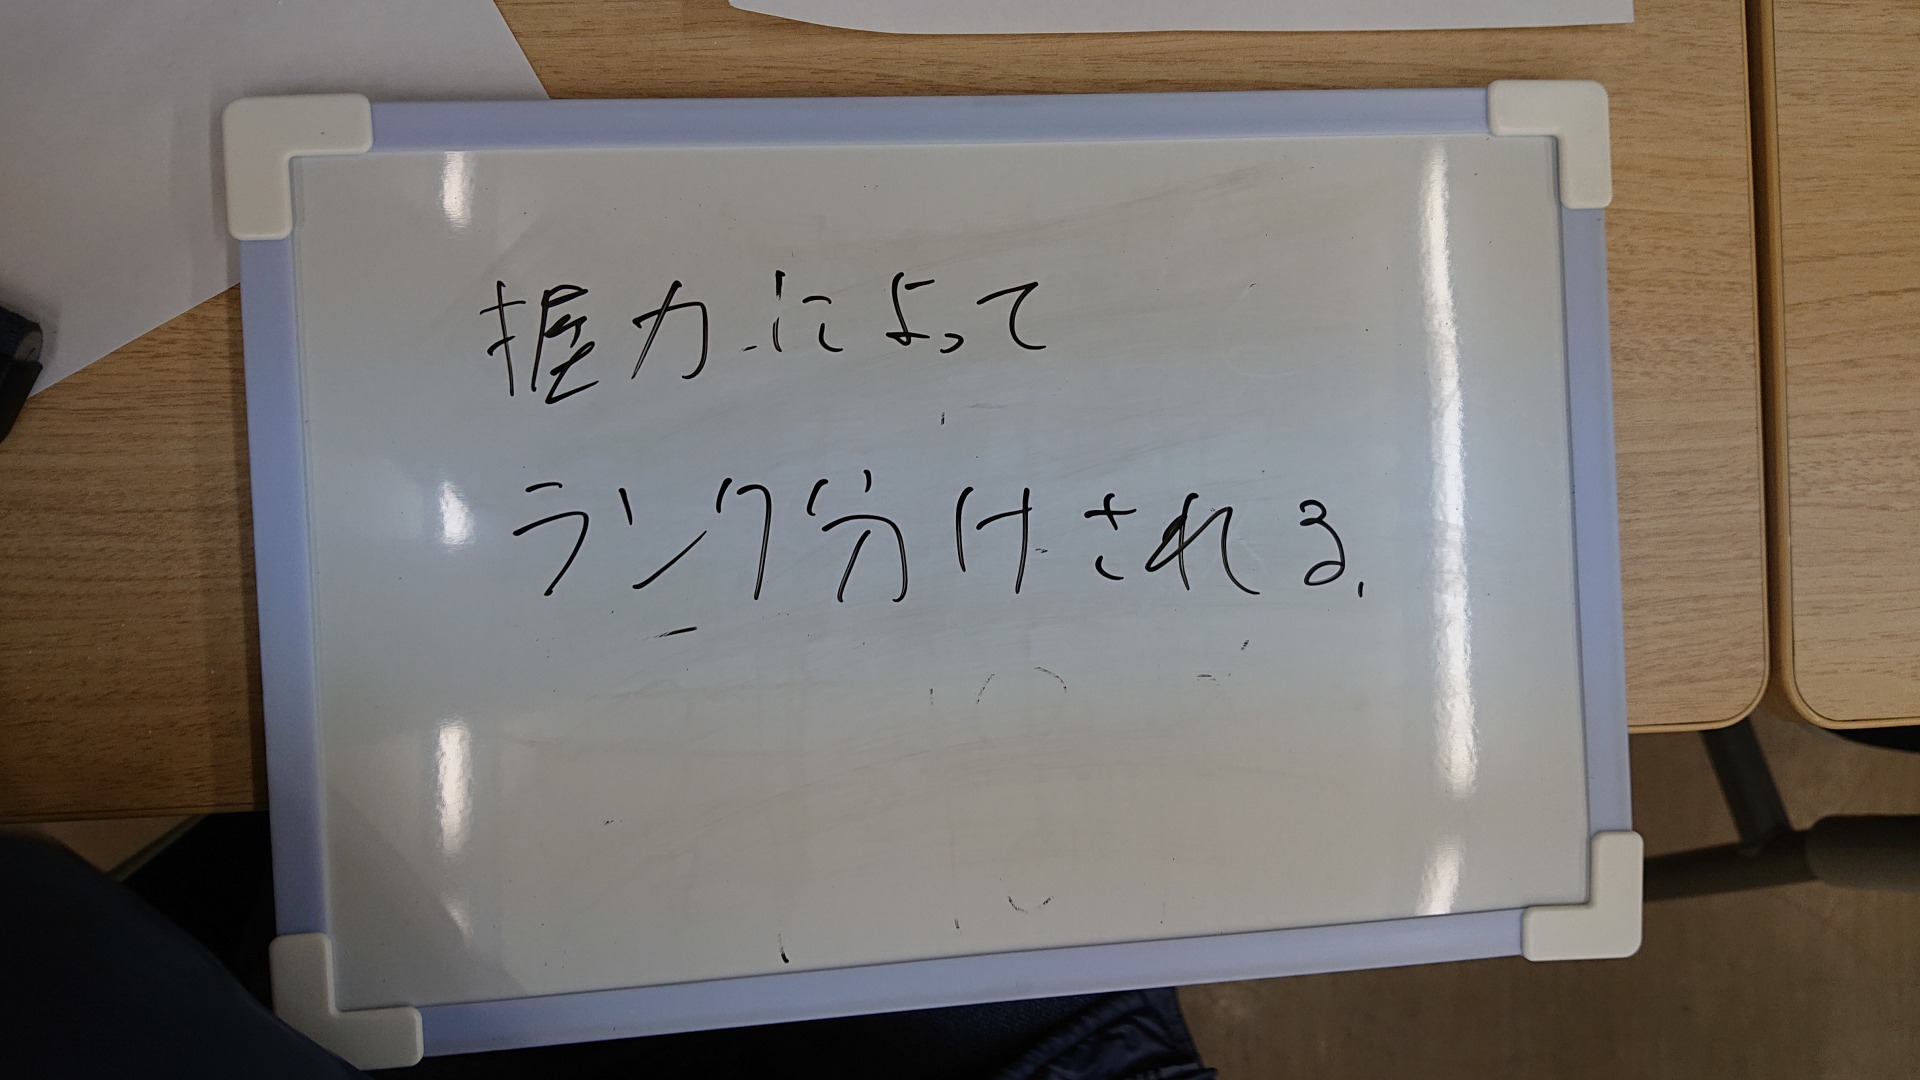 握力によって
ランク分けされる.